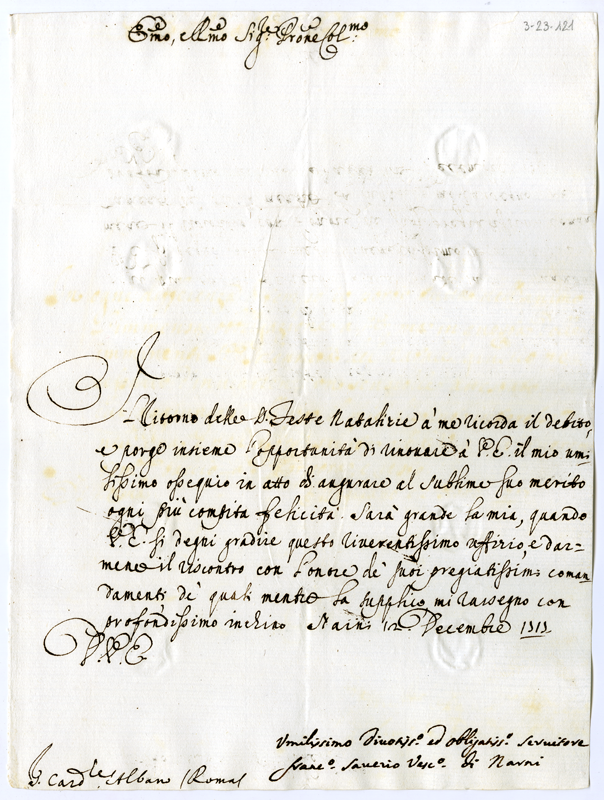 3-23-121
Em̃o, e Rmo Sigre Prone Colmo
Il ritorno delle S. Feste Natalizie à me ricorda il debito,
e porge insieme l'opportunità di rinovare à V.E. il mio umi:
lissimo ossequio in atto di augurare al sublime suo merito
ogni più compita felicità. Sarà grande la mia, quando
V.E. si degni gradire questo riverentissimo uffizio, e dar=
mene il riscontro con l'onore de' suoi pregiatissimi coman
damenti de' quali mentre la supplico, mi rassegno con
profondissimo inchino Narni 12 Decembre
D.V.E.
Umilissimo Divotiso. ed obligatiso. Servitore
Franco. Saverio Vesco. di Narni
Sr. Cardle Albano (Roma)